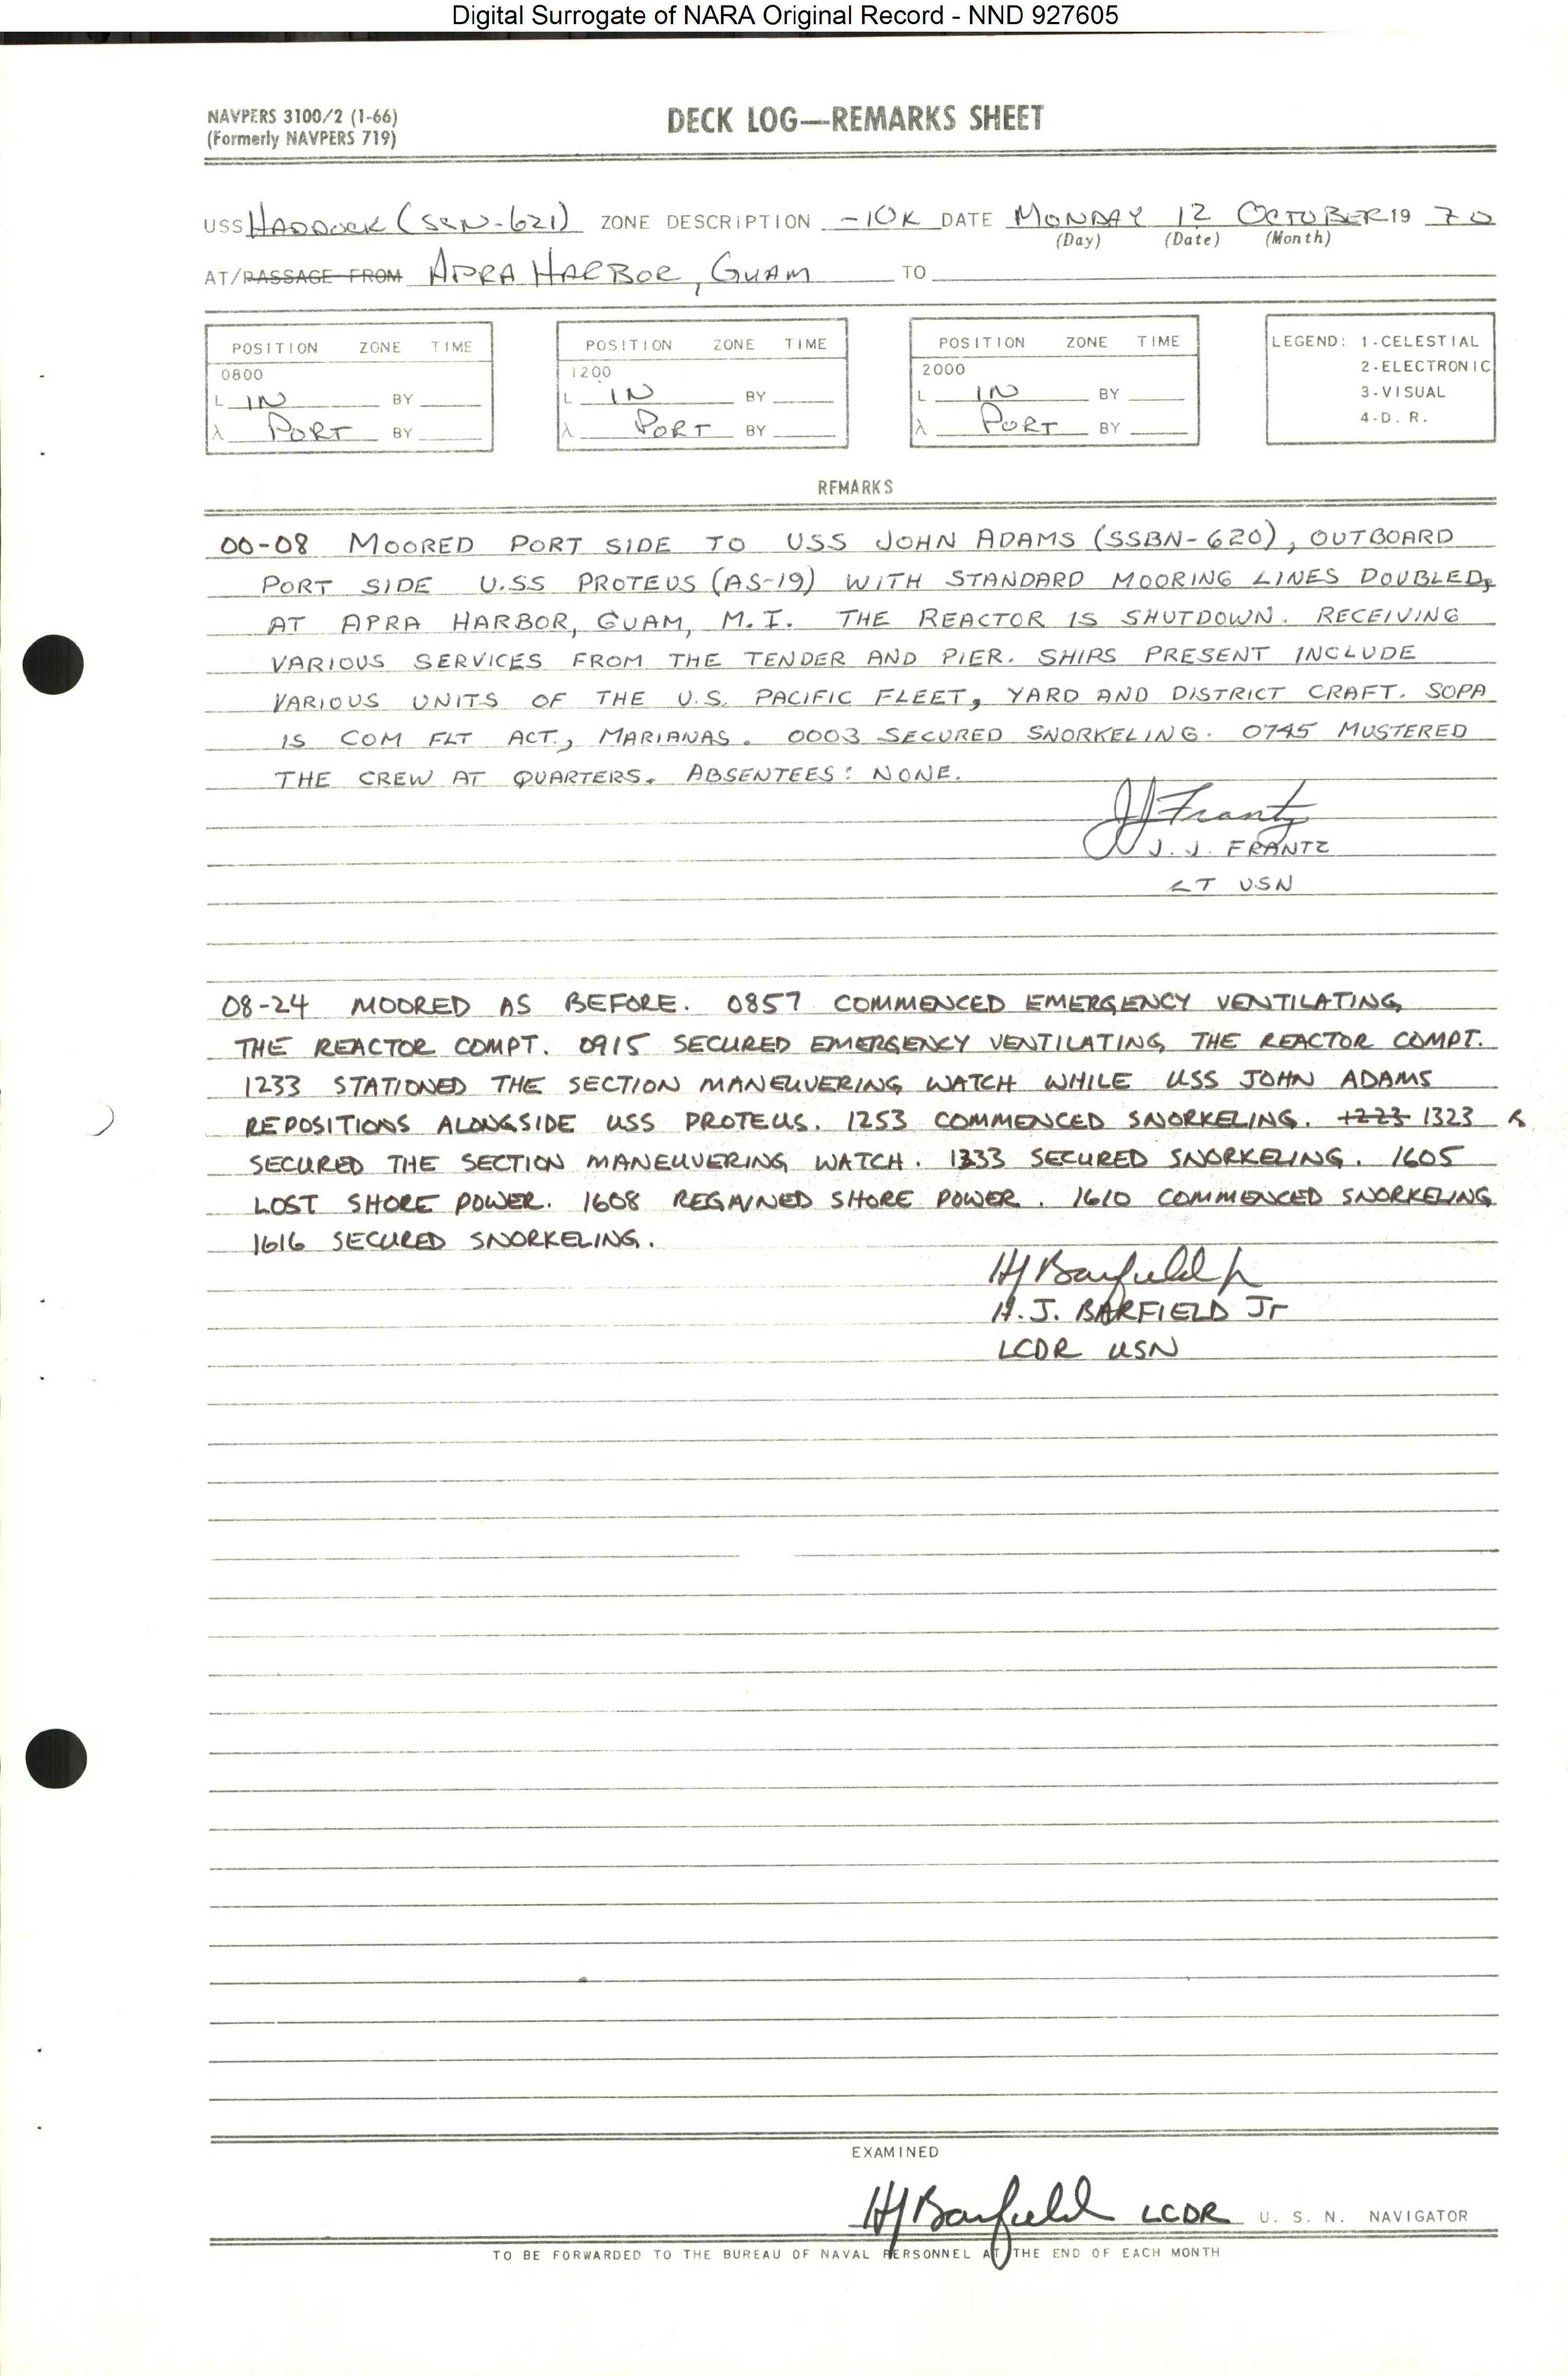 Digital Surrogate of NARA Original Record - NND 927605
NAVPERS 3100/2 (1-66)
(Formerly NAVPERS 719)
DECK LOG—REMARKS SHEET
USS HADDOCK (SSN-621) ZONE DESCRIPTION -10K DATE MONDAY 12 OCTOBER 19 70
(Day) (Date) (Month)
AT/PASSAGE FROM APRA HARBOR, GUAM TO
POSITION ZONE TIME
0800
L IN BY
λ PORT BY
POSITION ZONE TIME
1200
L IN BY
λ PORT BY
POSITION ZONE TIME
2000
L IN BY
λ PORT BY
LEGEND: 1-CELESTIAL
2-ELECTRONIC
3-VISUAL
4-D. R.
REMARKS
00-08 MOORED PORT SIDE TO USS JOHN ADAMS (SSBN-620), OUTBOARD
PORT SIDE U.SS PROTEUS (AS-19) WITH STANDARD MOORING LINES DOUBLED,
AT APRA HARBOR, GUAM, M.I. THE REACTOR IS SHUTDOWN. RECEIVING
VARIOUS SERVICES FROM THE TENDER AND PIER. SHIPS PRESENT INCLUDE
VARIOUS UNITS OF THE U.S. PACIFIC FLEET, YARD AND DISTRICT CRAFT. SOPA
IS COM FLT ACT., MARIANAS. 0003 SECURED SNORKELING. 0745 MUSTERED
THE CREW AT QUARTERS. ABSENTEES: NONE.
JJ Frantz
J. J. FRANTZ
LT USN
08-24 MOORED AS BEFORE. 0857 COMMENCED EMERGENCY VENTILATING
THE REACTOR COMPT. 0915 SECURED EMERGENCY VENTILATING THE REACTOR COMPT.
1233 STATIONED THE SECTION MANEUVERING WATCH WHILE USS JOHN ADAMS
REPOSITIONS ALONGSIDE USS PROTEUS. 1253 COMMENCED SNORKELING. 1223 1323
SECURED THE SECTION MANEUVERING WATCH. 1333 SECURED SNORKELING. 1605
LOST SHORE POWER. 1608 REGAINED SHORE POWER. 1610 COMMENCED SNORKELING
1616 SECURED SNORKELING.
HJ Barfield Jr
H. J. BARFIELD Jr
LCDR USN
EXAMINED
HJ Barfield LCDR U. S. N. NAVIGATOR
TO BE FORWARDED TO THE BUREAU OF NAVAL PERSONNEL AT THE END OF EACH MONTH